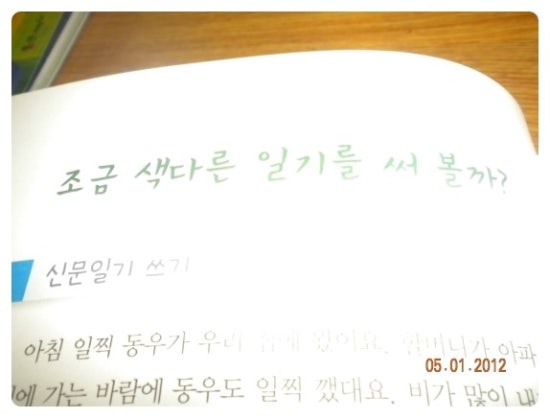 조금 색다른 일기를 써 볼까?
신문일기 쓰기
아침 일찍 동우가 우리 집에 왔어요. 할머니가 아파
가는 바람에 동우도 일찍 깼대요. 비가 많이
05.01.2012